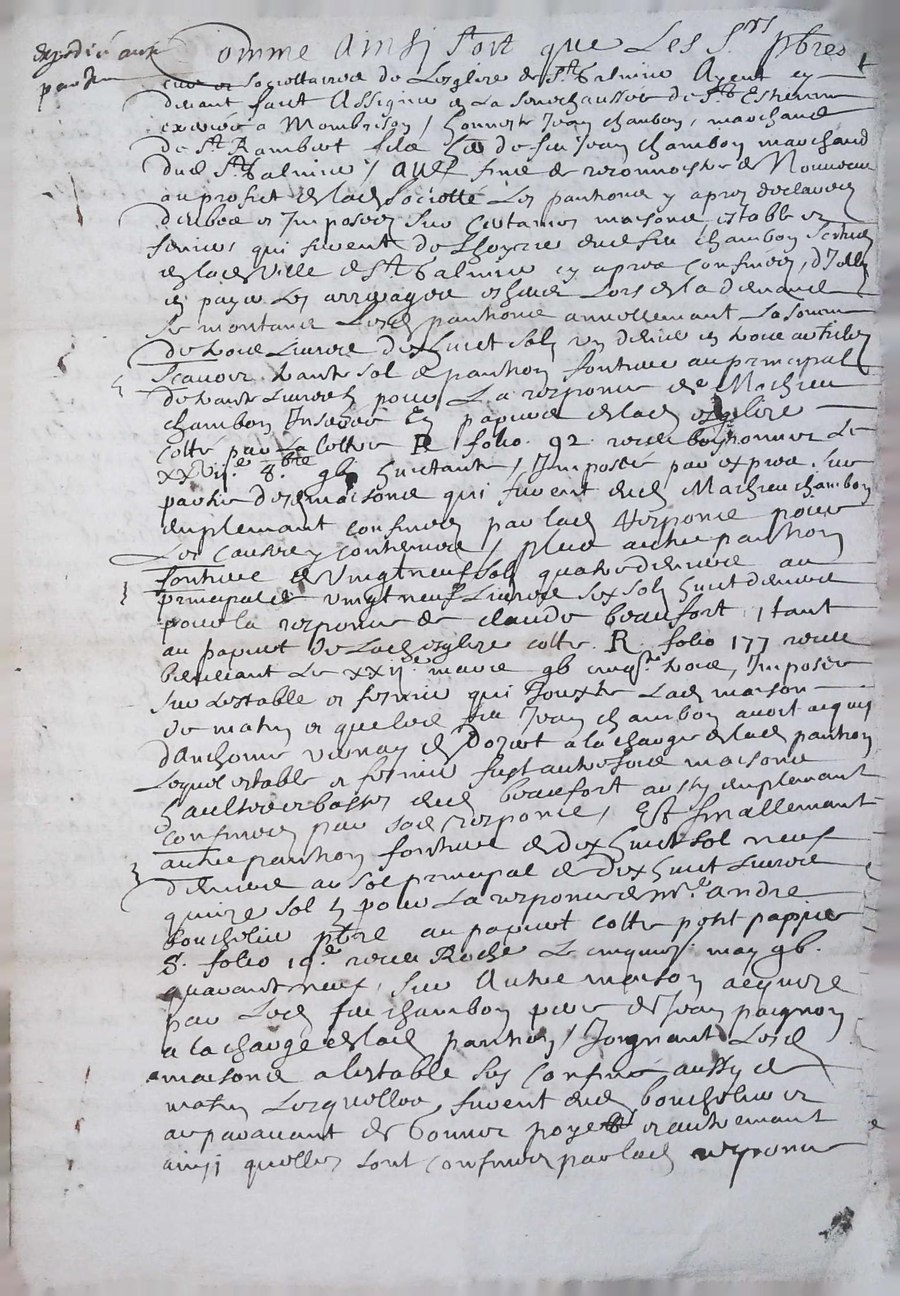 expedié aux
parties
Comme Ainsi soit que Les S.rs pbres
curé et Societtaires de Lesglize de St Galmier Ayent cy
devant faict Assigner en La seneschaussée de St Estienne
exercée a Montbrison / honneste Jean chambon, marchand
de St Rambert filz de feu Jean chambon marchand
dud St Galmier / aux fins de reconnoistre de Nouveau
au proffict de lad Societté Les panthions cy apres declairés
deubes et Imposées sur Certaines maisons estable et
feniere, qui furent de dud feu chambon scituées
en lad Ville de St Galmier cy apres Confinées,
et payer Les arreyages escheus Lors de la demande
Se montant Lesd panthions annuellement La somme
de deux sols un denier
Scavoir trante sol de panthion fonciere au principal
de trante Livres pour La responce de Mathieu
chambon Inserée En papier de lad esglize
cotté par La Lettre R folio 92 receue le
XXVII.e 8.bre gb huictante / Imposée par expres sur
partie desd maisons qui furent dud Mathieu chambon
amplemant confinées par lad Responce pour
Les Causes y contenues / plus autre panthion
fonciere de Vingt neuf sols quatre deniers au
principal de vingt neuf Livres six sols huict deniers
pour la responce de claude beaufort estant
au papier de Lad esglize cotté R folio 177 receue
Le XXII.e mars gb cinq.te trois, Imposée
sur Lestable et feniere qui Jouxte Lad maison
de matin et que led feu Jean chambon avoit acquis
d'anthoine vernay et a la charge de lad panthion
Lequel estable et feniere fust autresfois maisons
haultes et basses dud beaufort aussy amplemant
confinées par sad responce, Et finallemant
autre panthion fonciere de dix huict sol neuf
deniers au sol principal de dix huict Livres
quinze sol pour La responce de M.re andré
boucholier pbre au papier cotté petit pappier
S. folio 19.e receue Roche Le cinquies.e may gb.
quarante neuf, sur Autre maison acquize
par Led feu chambon pere de Jean pagnon
a la charge de lad panthion / Joignant Lesd
maisons a lestable sus Confiné aussy de
matin Lesquelles furent dud boucholier et
auparavant de et autremant
ainsi quelles sont confinées par lad responce